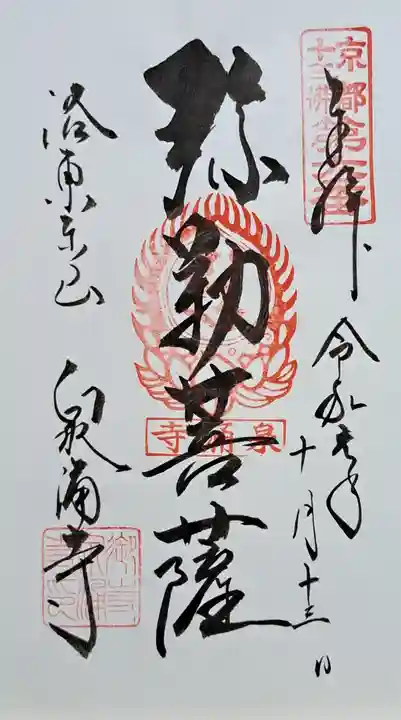 京都
十三佛霊場
奉拝
令和元年
十月十三日
弥勒菩薩
泉涌寺
洛東東山
御寺泉涌寺